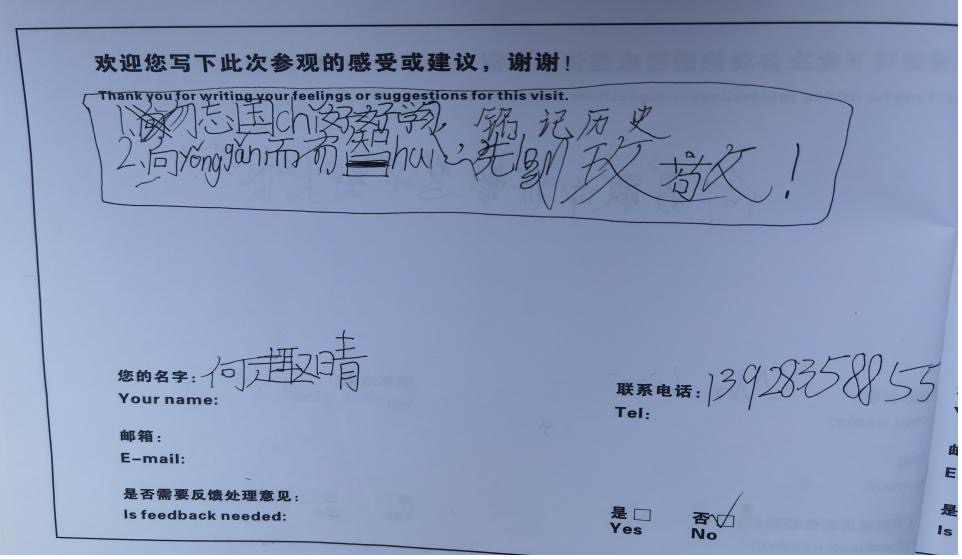 欢迎您写下此次参观的感受或建议，谢谢！
Thank you for writing your feelings or suggestions for this visit.
1.勿志国chǐ好好学习，铭记历史
2.向yǒnggǎn而有智huì 先列致敬！
您的名字：何趣晴
Your name:
联系电话：13928358855
Tel:
邮箱：
E-mail:
是否需要反馈处理意见：
Is feedback needed:
是□ 否☑
Yes No